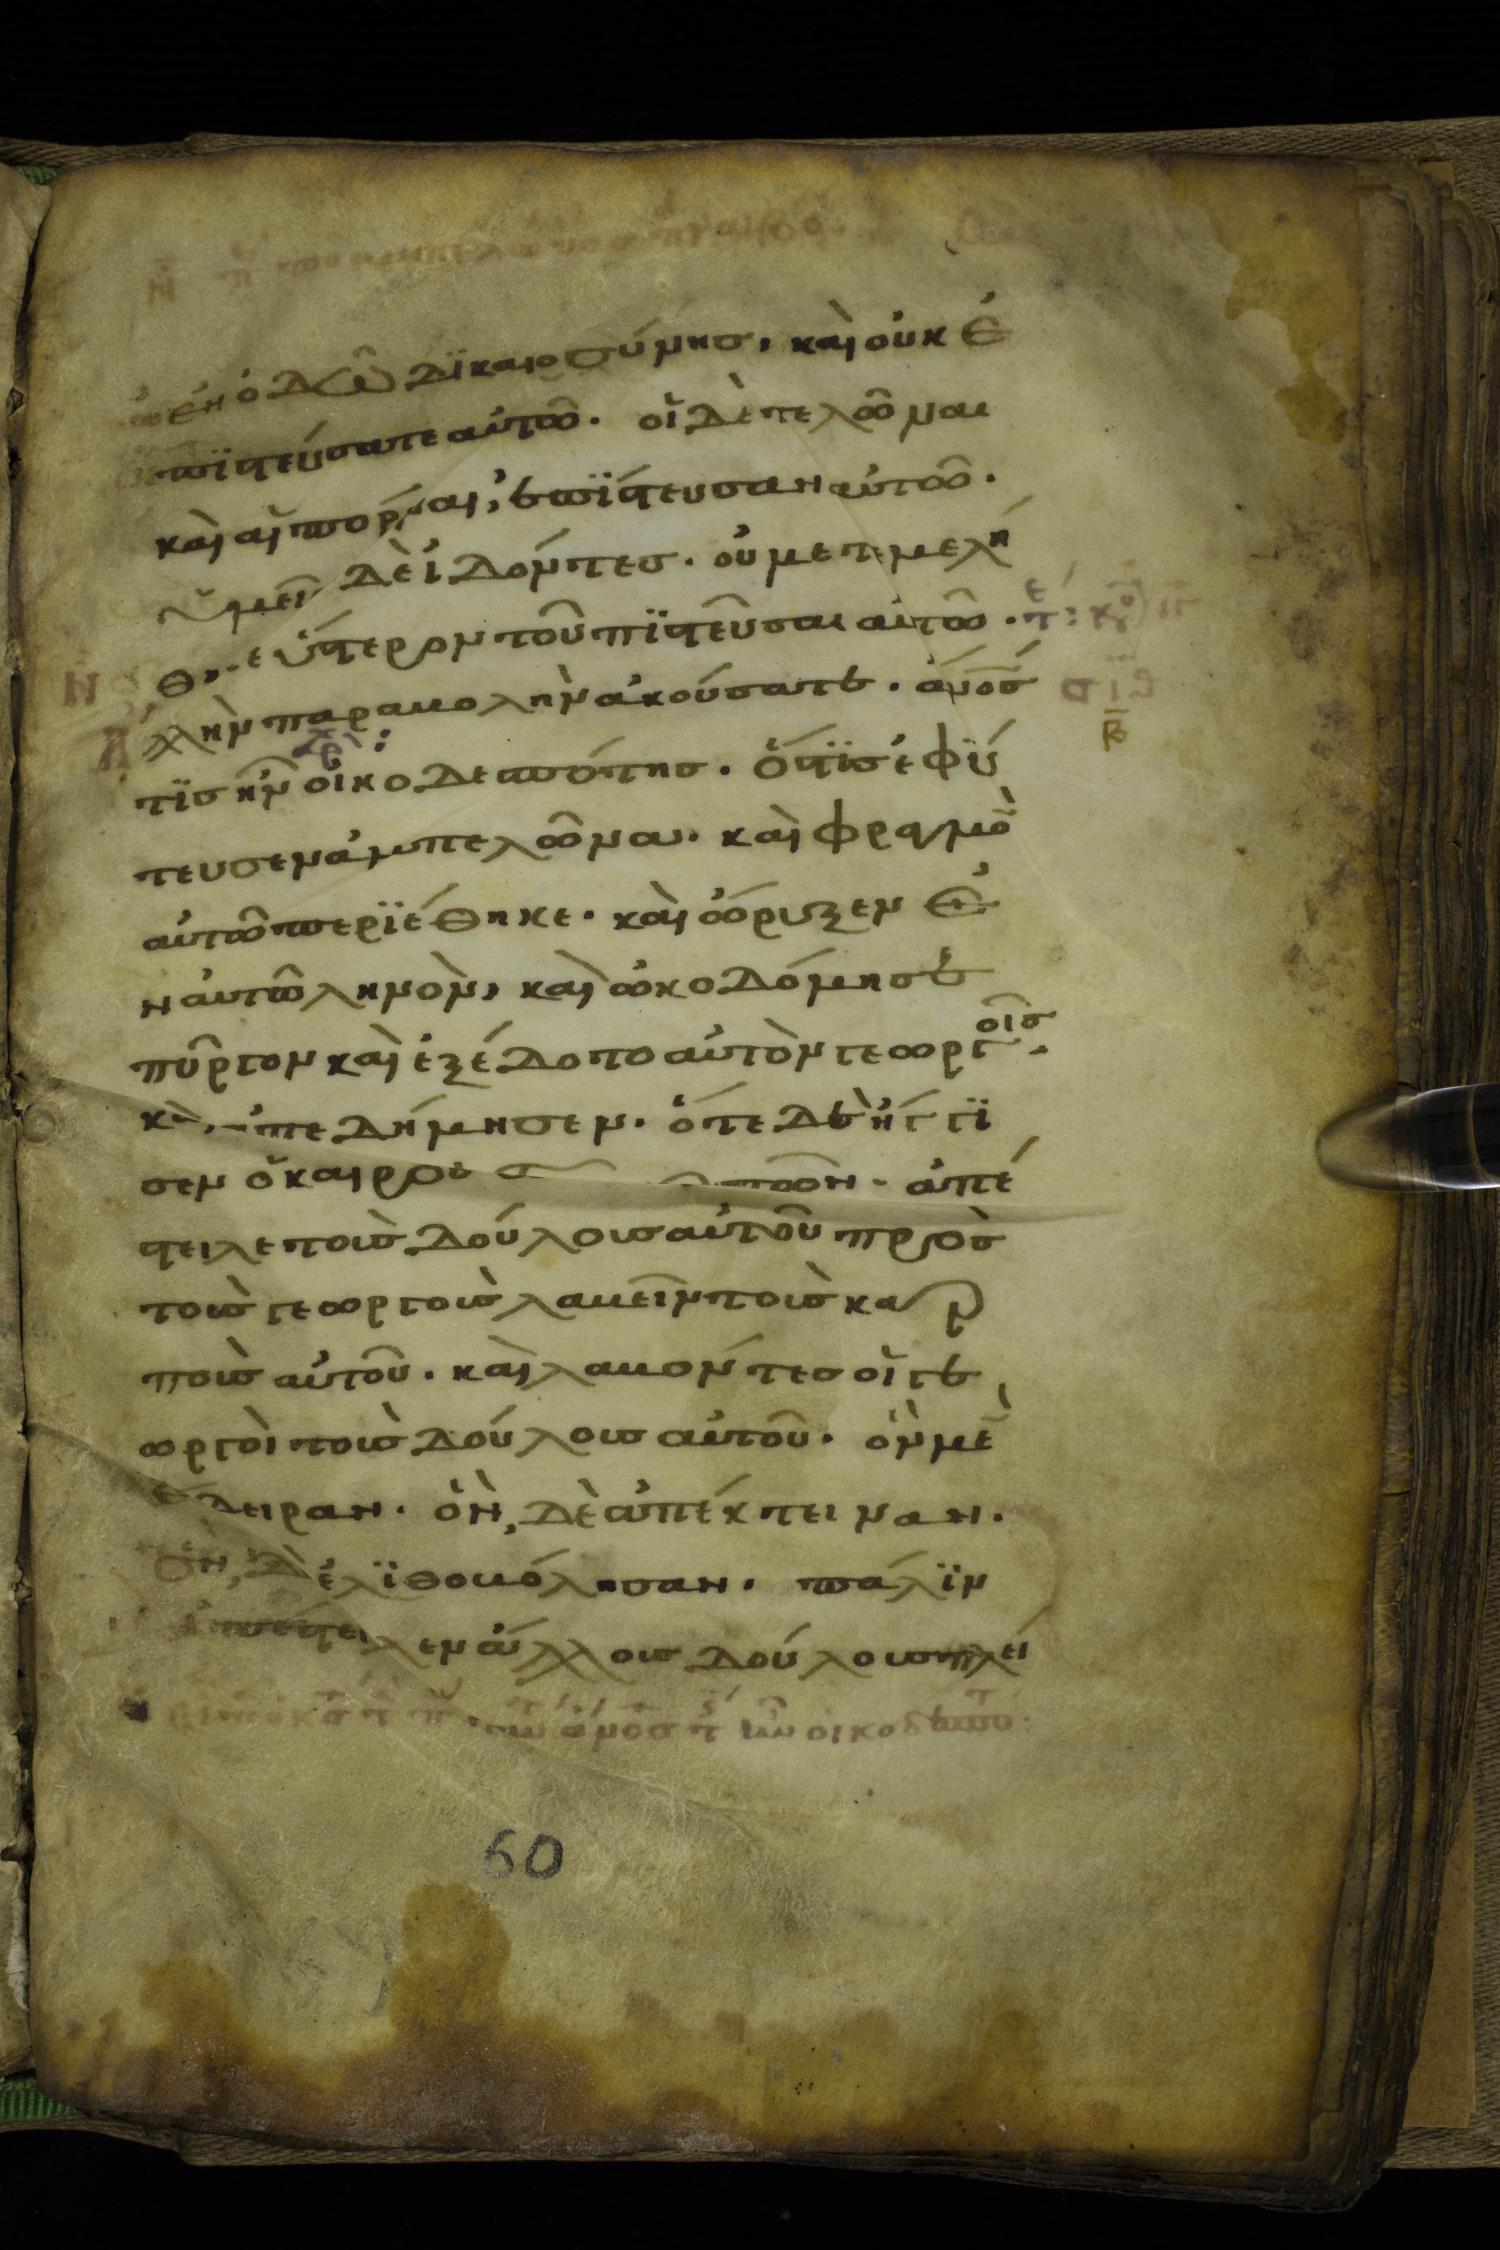 ἐν ὁδῶ δϊκαιοσύνης, καὶ οὐκ ἐ
πϊστεύσατε αὐτῶ. οἱ δὲ τελῶναι
καὶ αἱ πόρναι, ἐπΐστευσαν αὐτῶ.
ὑμεῖς δὲ ἰδόντες. οὐ μετεμελή
θητε ὕστερον τοῦ πϊστεῦσαι αὐτῶ.
Ἄλλην παραβολὴν ἀκούσατε. ἄνος
τϊς ἦν οἰκοδεσπότης. ὅστϊς ἐφΰ
τευσεν ἀμπελῶνα. καὶ φραγμὸ̄
αὐτῶ περϊέθηκε. καὶ ὤρυξεν ἐ
ν αὐτῶ ληνὸν, καὶ ὠκοδόμησε
πῦργον καὶ ἐξέδοτο αὐτὸν γεωργοῖς.
καὶ ἀπεδήμησεν. ὅτε δὲ ἤγγϊ
σεν ὁ καιρὸς τῶν. ἀπέ
στειλε τοὺς δούλους αὐτοῦ πρὸς
τοὺς γεωργοὺς λαβεῖν τοὺς καρ
ποὺς αὐτοῦ. καὶ λαβόντες οἱ γε
ωργοὶ τοὺς δούλους αὐτοῦ. ὃν μὲ̄
ἔδειραν. ὃν δὲ ἀπέκτειναν.
ὃν δὲ ἐλϊθοβόλησαν. πάλϊν
ἀπέστειλεν ἄλλους δούλους πλεί
60